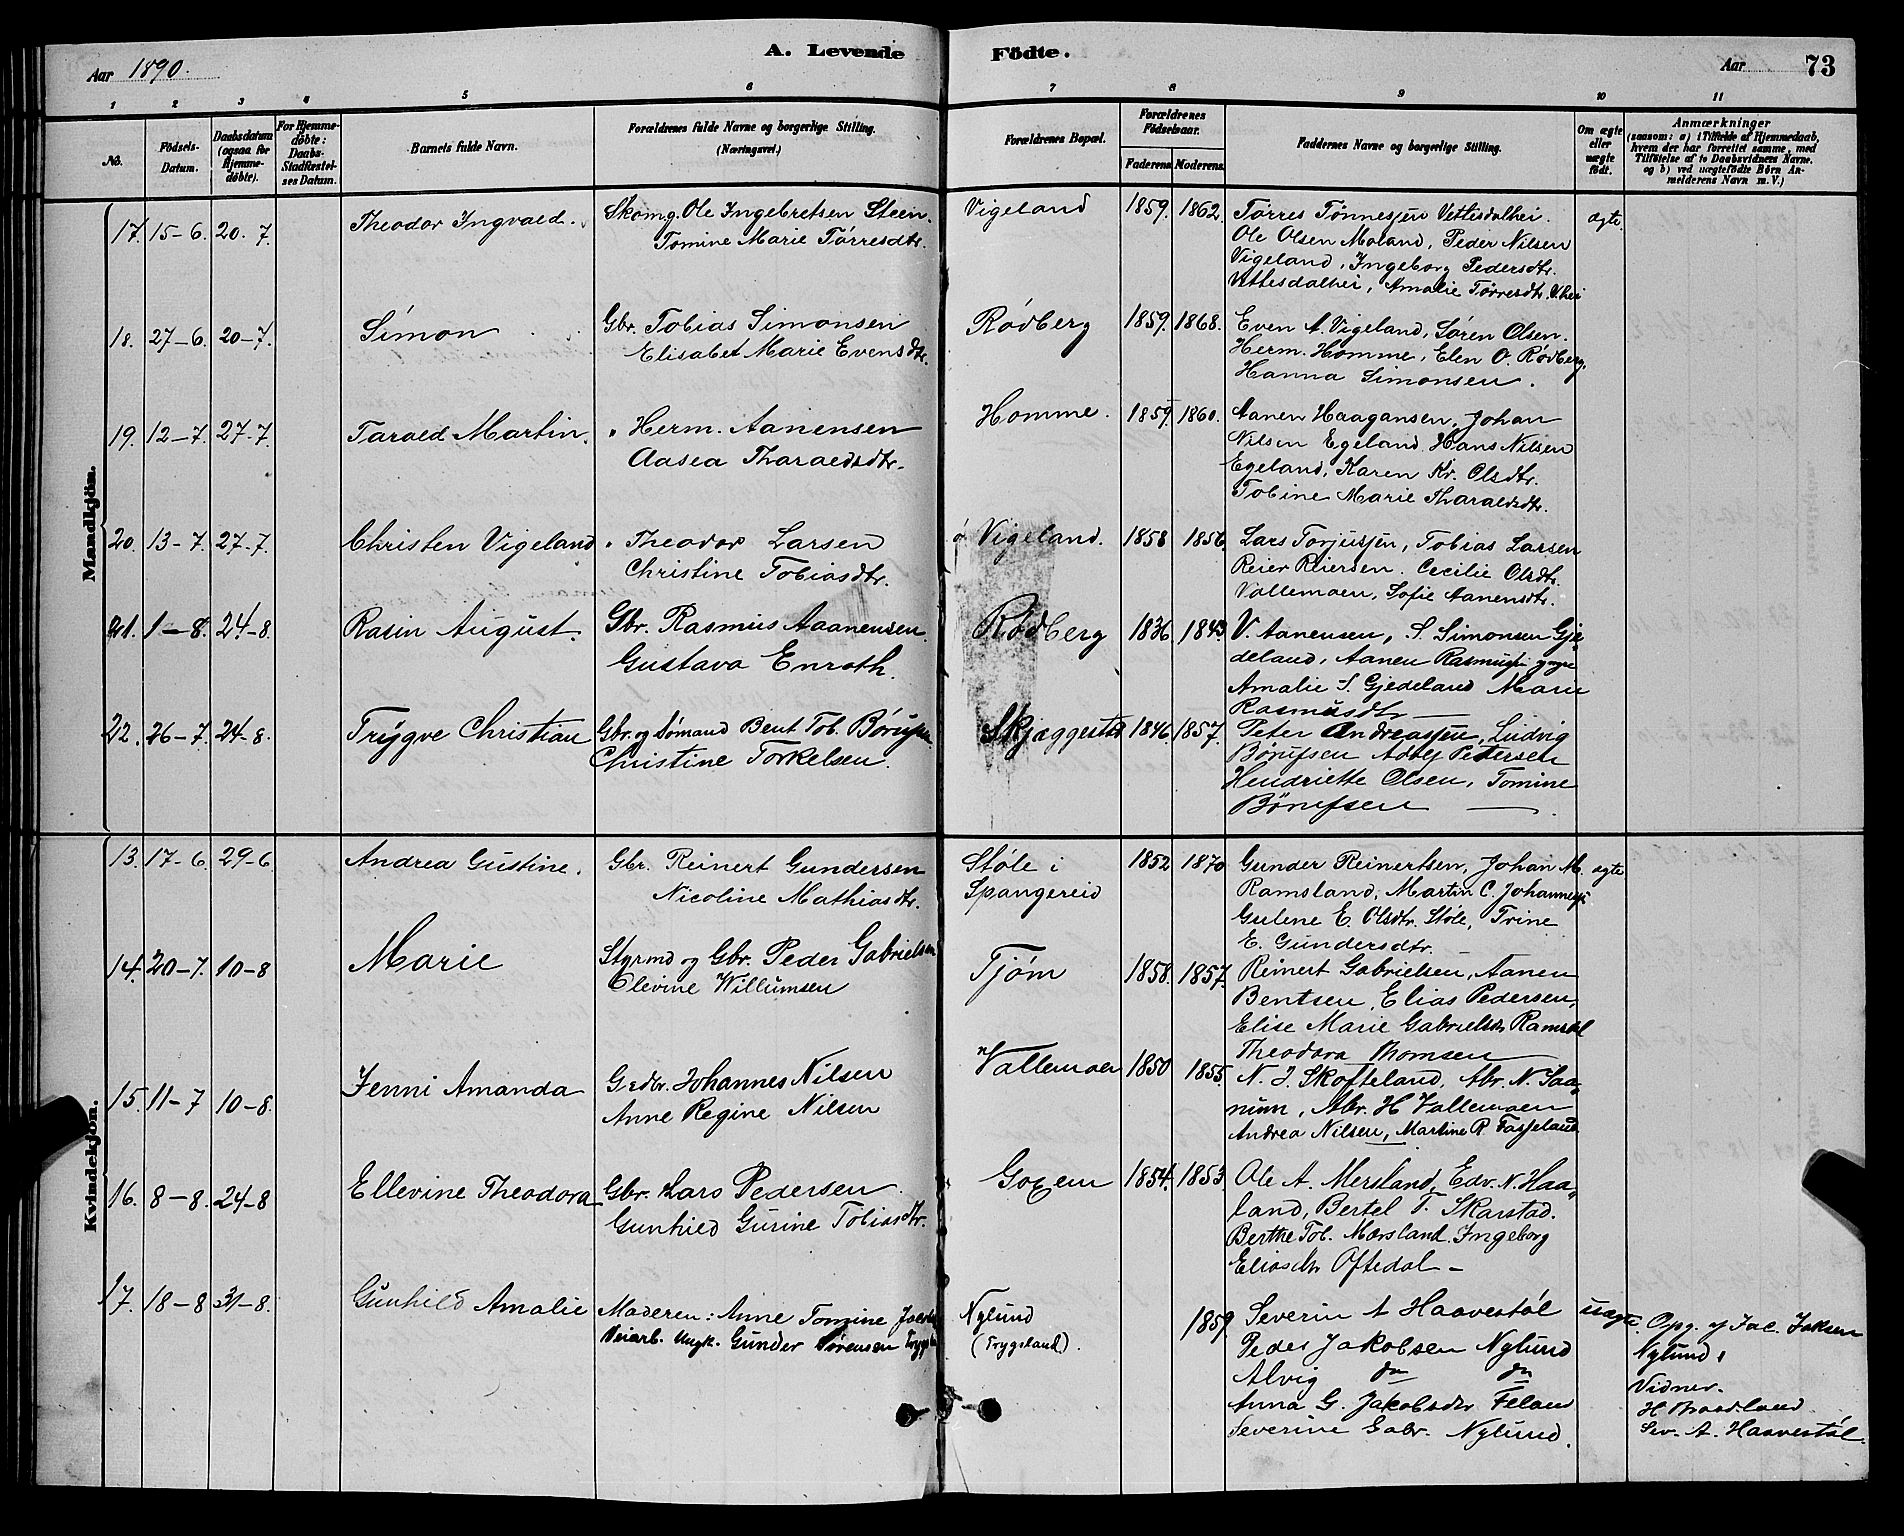 Aar 1890.
A. Levende Födte.
Aar 73
1 2 3 4 5 6 7 8 9 10 11
No.
Födsels-Datum.
Daabsdatum (ogsaa for Hjemme-døbte).
For Hjemme-døbte: Daabs-Stadfæstel-ses Datum.
Barnets fulde Navn.
Forældrenes fulde Navne og borgerlige Stilling. (Næringsvei.)
Forældrenes Bopæl.
Forældrenes Födselsaar.
Faderens. Moderens.
Faddernes Navne og borgerlige Stilling.
Om ægte eller uægte født.
Anmærkninger
(saasom: a) i Tilfælde af Hjemmedaab,
hvem der har forrettet samme, med
Tilföielse af to Daabsvidners Navne.
og b) ved uægtefödte Börn An-
melderens Navn m. V.)
Mandkjön.
17. 15-6. 20. 7. Theodor Ingvald. Skomg. Ole Ingebretsen Steen. Vigeland 1859. 1862. Tørres Tønnesjen Vettisdalhei. ægte
Tomine Marie Tørresdtr. Ole Olsen Moland, Peder Nilsen
Vigeland, Ingeborg Pedersdtr.
Vettesdalhei, Amalie Tørresdtr. V.hei
18. 27-6. 20-7. Simon Gbr. Tobias Simonsen Rødberg 1859. 1868. Even A. Vigeland, Søren Olsen.
Elisabet Marie Evensdtr. Herm. Homme, Elen O. Rødberg,
Hanna Simonsen.
19. 12-7. 27-7. Tarald Martin. " Herm. Aanensen Homme. 1859. 1860. Aanen Haagansen, Johan
Aasea Tharaldsdtr. Nilsen Egeland. Hans Nilsen
Egeland, Karen Kr. Olsdtr.
Tobine Marie Tharaldsdtr.
20. 13-7. 27-7. Christen Vigeland " Theodor Larsen ø Vigeland. 1858 1856. Lars Torjusjen, Tobias Larsen
Christine Tobiasdtr. Reier Reiersen. Cecilie Olsdtr.
Vallemoen, Sofie Aanensdtr.
21. 1-8. 24-8. Rasin August. Gbr. Rasmus Aaanensen. Rødberg 1836 1843 V. Aanensen, S. Simonsen Gje
Gustava Enroth. deland, Aanen Rasmusjen yngre
Amalie S. Gjedeland Marie
Rasmusdtr
22. 26-7. 24-8. Trygve Christian Gbr. og Sømand Bent Tob. Børufsen Skjæggestad 1846. 1857. Peter Andreasjen, Ludvig
Christine Torkelsen. Børufsen Adolf Petersen
Hendriette Olsen, Tomine
Børufsen
Kvindekjön.
13. 17-6. 29-6 Andrea Gustine. Gbr. Reinert Gundersen Støle i 1852 1870 Gunder Reinertsen, Johan M. ægte
Nicoline Mathiasdtr. Spangereid Ramsland, Martin C. Johannesen
Gulene E. Olsdtr. Støle, Trine
E. Gundersdtr.
14. 20-7. 10-8 Marie Styrmd og Gbr. Peder Gabrielsen Tjøm 1858. 1857. Reinert Gabrielsen, Aanen
Olevine Willumsen Bentsen, Elias Pedersen,
Elise Marie Gabrielsdtr Ramsdal
Theodora Thomsen
15. 11-7 10-8. Jenni Amanda Grdbr. Johannes Nilsen Vallemoen 1850 1855. N. J. Skofteland, Abr. N. Saa-
Anne Regine Nilsen num, Abr. H Vallemoen
Andrea Nilsen, Martine R. Fasseland
16. 8-8. 24-8 Ellevine Theodora Gbr. Lars Pedersen Goxem 1854. 1853. Ole A. Mersland, Edv. N. Haa-
Gunhild Gurine Tobiasdtr. land, Bertel T. Skarstad.
Berthe Tob. Mersland. Ingeborg
Eliasdtr Oftedal
17. 18-8 31-8. Gunhild Amalie Moderen: Anne Tomine Nylund 1859. Severin A Haavestøl uægte. Opg. af Jac. Jaksen
Veiarb. Ungk. Gunder Sørensen (Trygsland). Peder Jakobsen Nylund Nylund,
Alvig do do Vidner.
Anna G. Jakobsdtr H.
Severine Gabr. Nylund. Sev. A. Haavestøl.